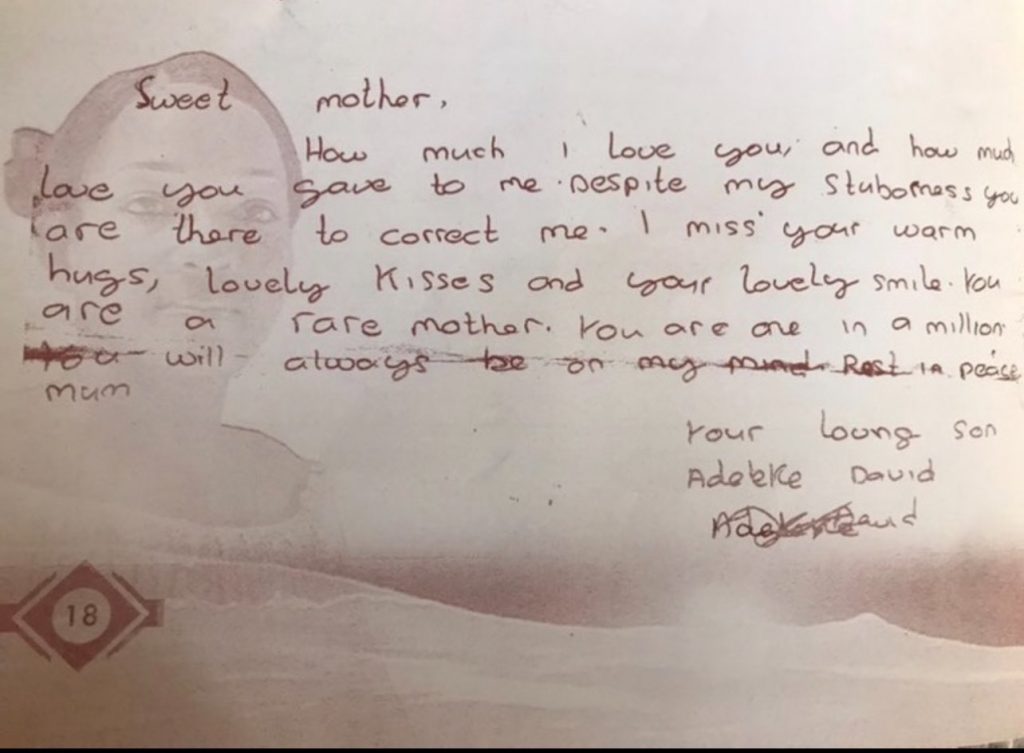 Sweet mother,
How much i love you, and how much
love you gave to me. Despite my Stuborness you
are there to correct me. I miss your warm
hugs, lovely kisses and your lovely smile. You
are a rare mother. You are one in a million
You will always be on my mind. Rest in peace
mum
Your loving son
David
David
18